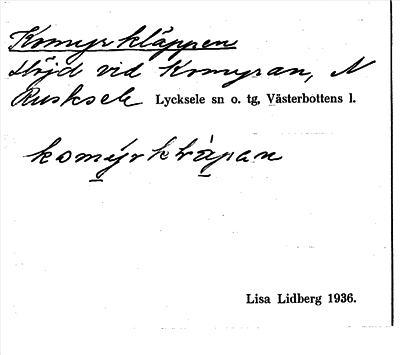 Komyrkläppen
Höjd vid Komyran, N
Rusksele Lycksele sn o. tg, Västerbottens l.
komýrkläpan
Lisa Lidberg 1936.